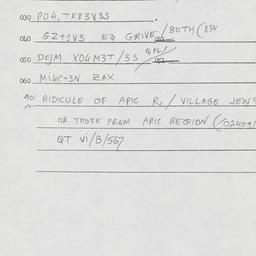 030 PO4, TK83V3S
040 GZ+1V3 EQ GRIVE/BOTH (834
050 DEJM XO4M3T/3S QPL/
060 M14C+3N ZAX
901 RIDICULE OF APIC R/ VILLAGE JEWS
OR THOSE FROM APIC REGION (/02409/
QT VI/B/567